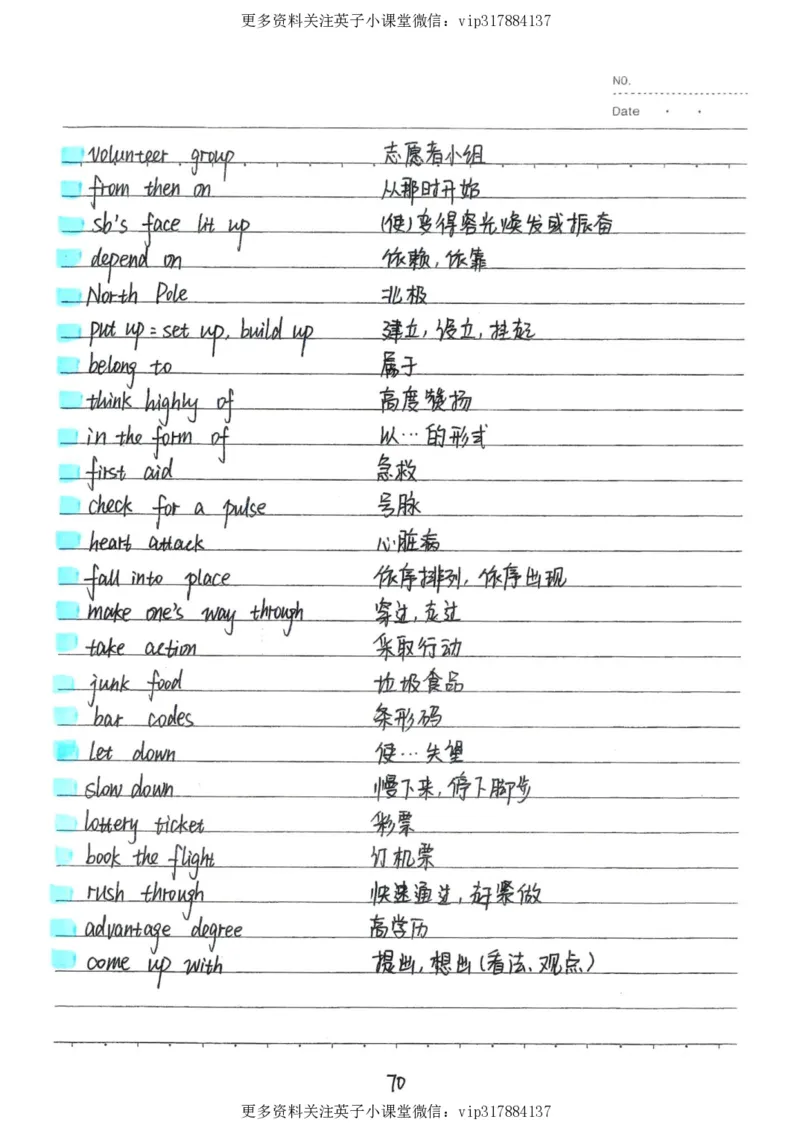 更多资料关注英子小课堂微信：vip317884137
NO.
Date
volunteer group 志愿者小组
from then on 从那时开始
sb's face lit up (使)变得容光焕发或振奋
depend on 依赖,依靠
North Pole 北极
put up = set up, build up 建立,设立,挂起
belong to 属于
think highly of 高度赞扬
in the form of 以…的形式
first aid 急救
check for a pulse 号脉
heart attack 心脏病
fall into place 依序排列,依序出现
make one's way through 穿过,走过
take action 采取行动
junk food 垃圾食品
bar codes 条形码
let down 使…失望
slow down 慢下来,停下脚步
lottery ticket 彩票
book the flight 订机票
rush through 快速通过,赶紧做
advantage degree 高学历
come up with 提出,想出(看法、观点)
70
更多资料关注英子小课堂微信：vip317884137